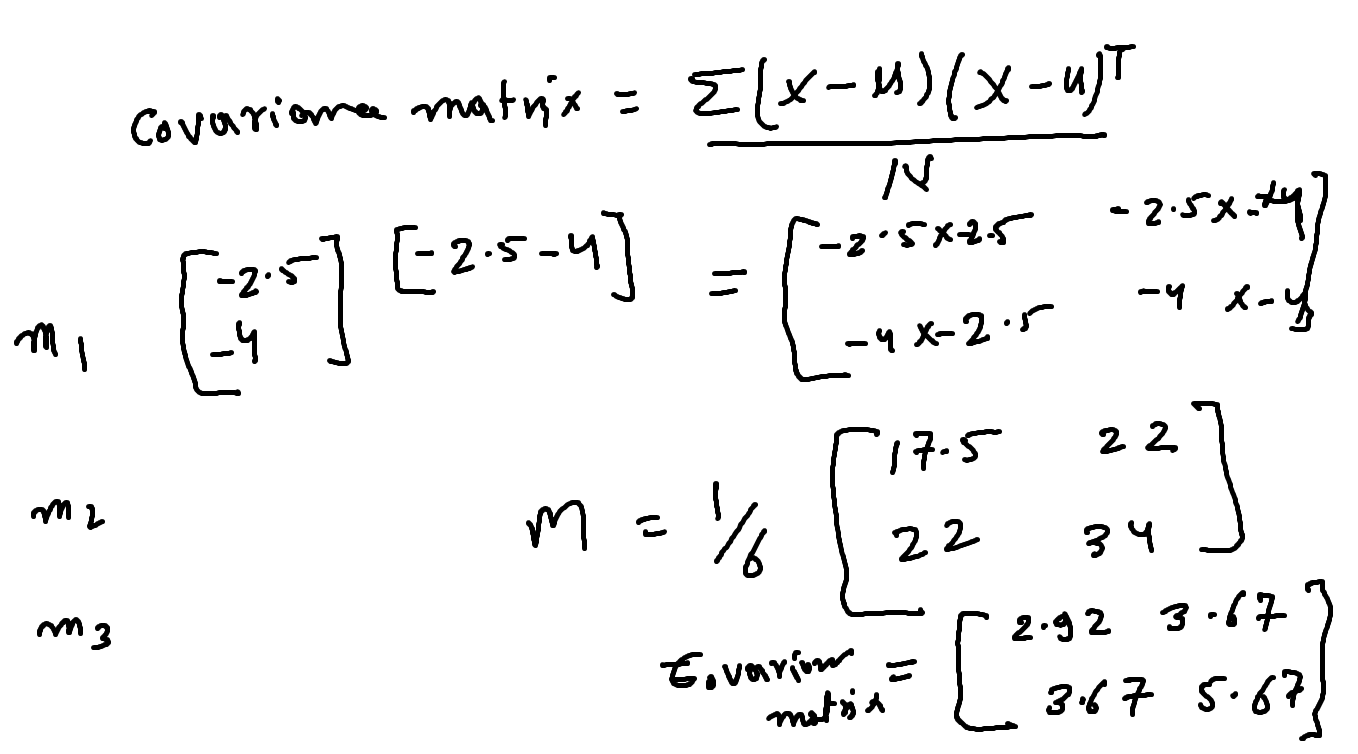 Covariance matrix = Σ(x-μ)(x-μ)ᵀ / N
m1 [-2.5 -4] [-2.5 -4] = [-2.5x-2.5 -2.5x-4
-4x-2.5 -4 x-4]
m2 M = 1/6 [17.5 22
22 34]
m3 Covariance matrix = [2.92 3.67
3.67 5.67]